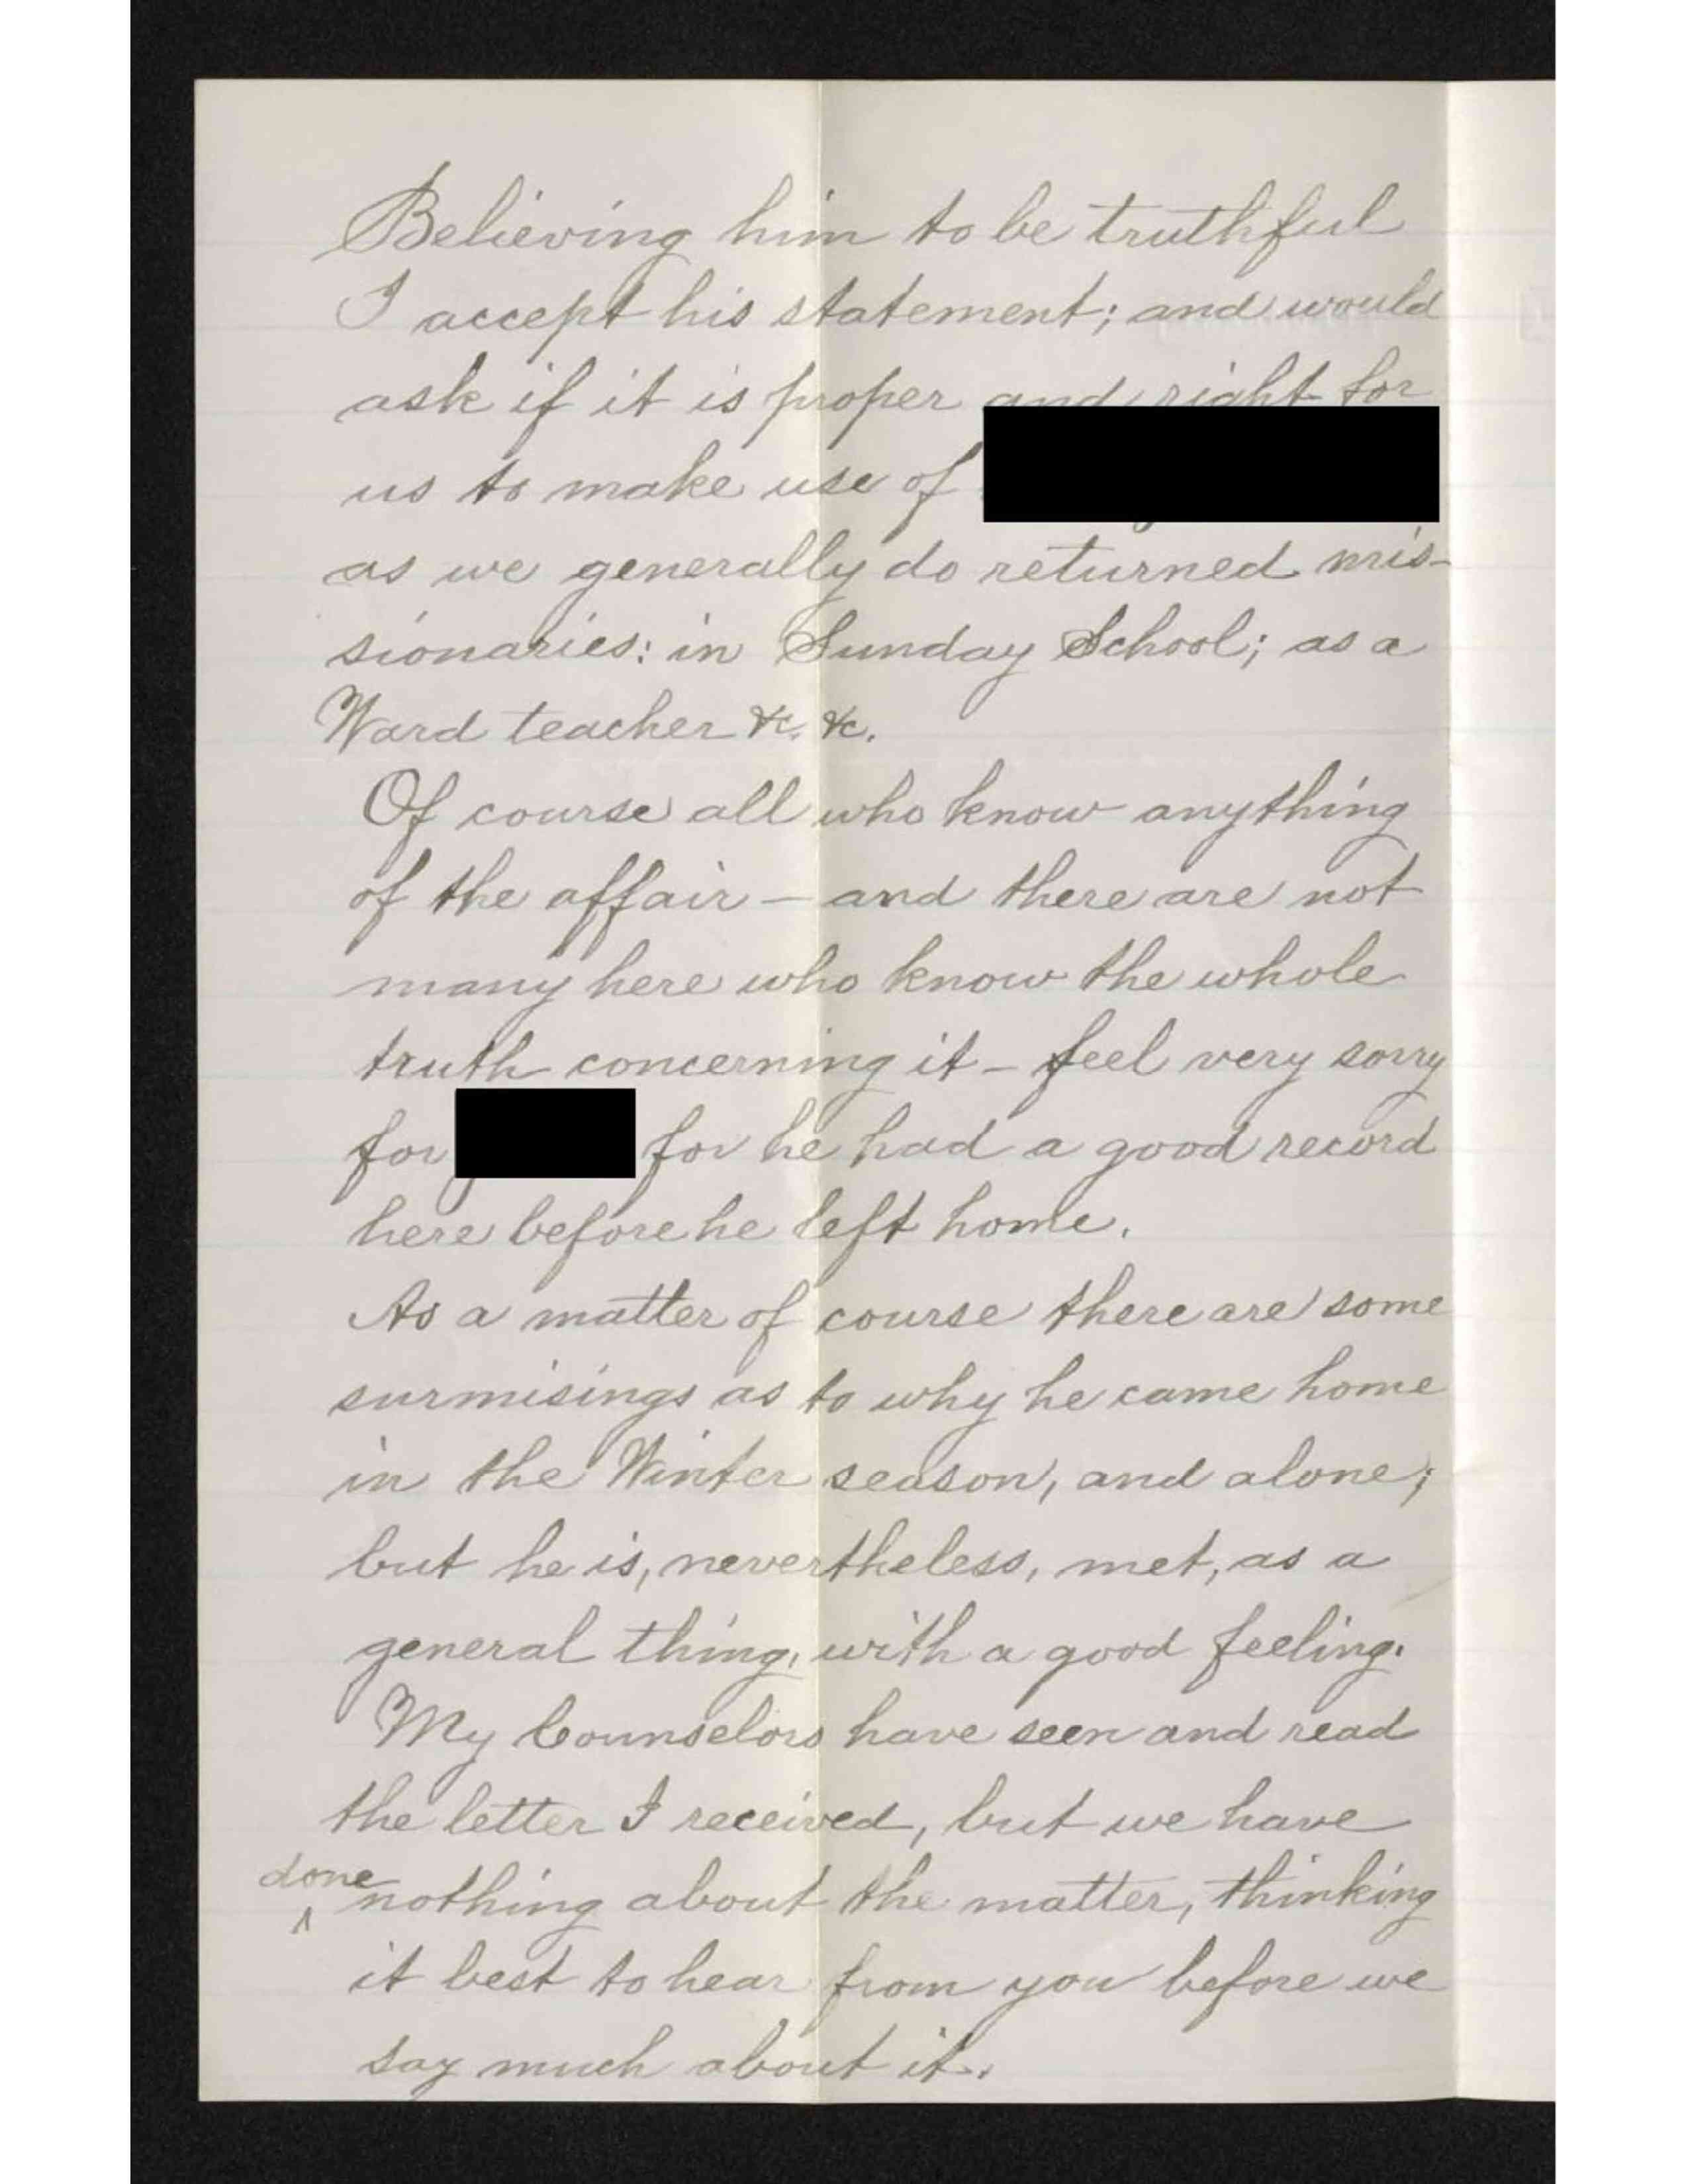 Believing him to be truthful
I accept his statement; and would
ask if it is proper and right for
us to make use of
as we generally do returned mis-
sionaries: in Sunday School; as a
Ward teacher &c. &c.
Of course all who know anything
of the affair – and there are not
many here who know the whole
truth concerning it – feel very sorry
for for he had a good record
here before he left home.
As a matter of course there are some
surmisings as to why he came home
in the Winter season, and alone;
but he is, nevertheless, met, as a
general thing, with a good feeling.
My Counselors have seen and read
the letter I received, but we have
done
^ nothing about the matter, thinking
it best to hear from you before we
say much about it.